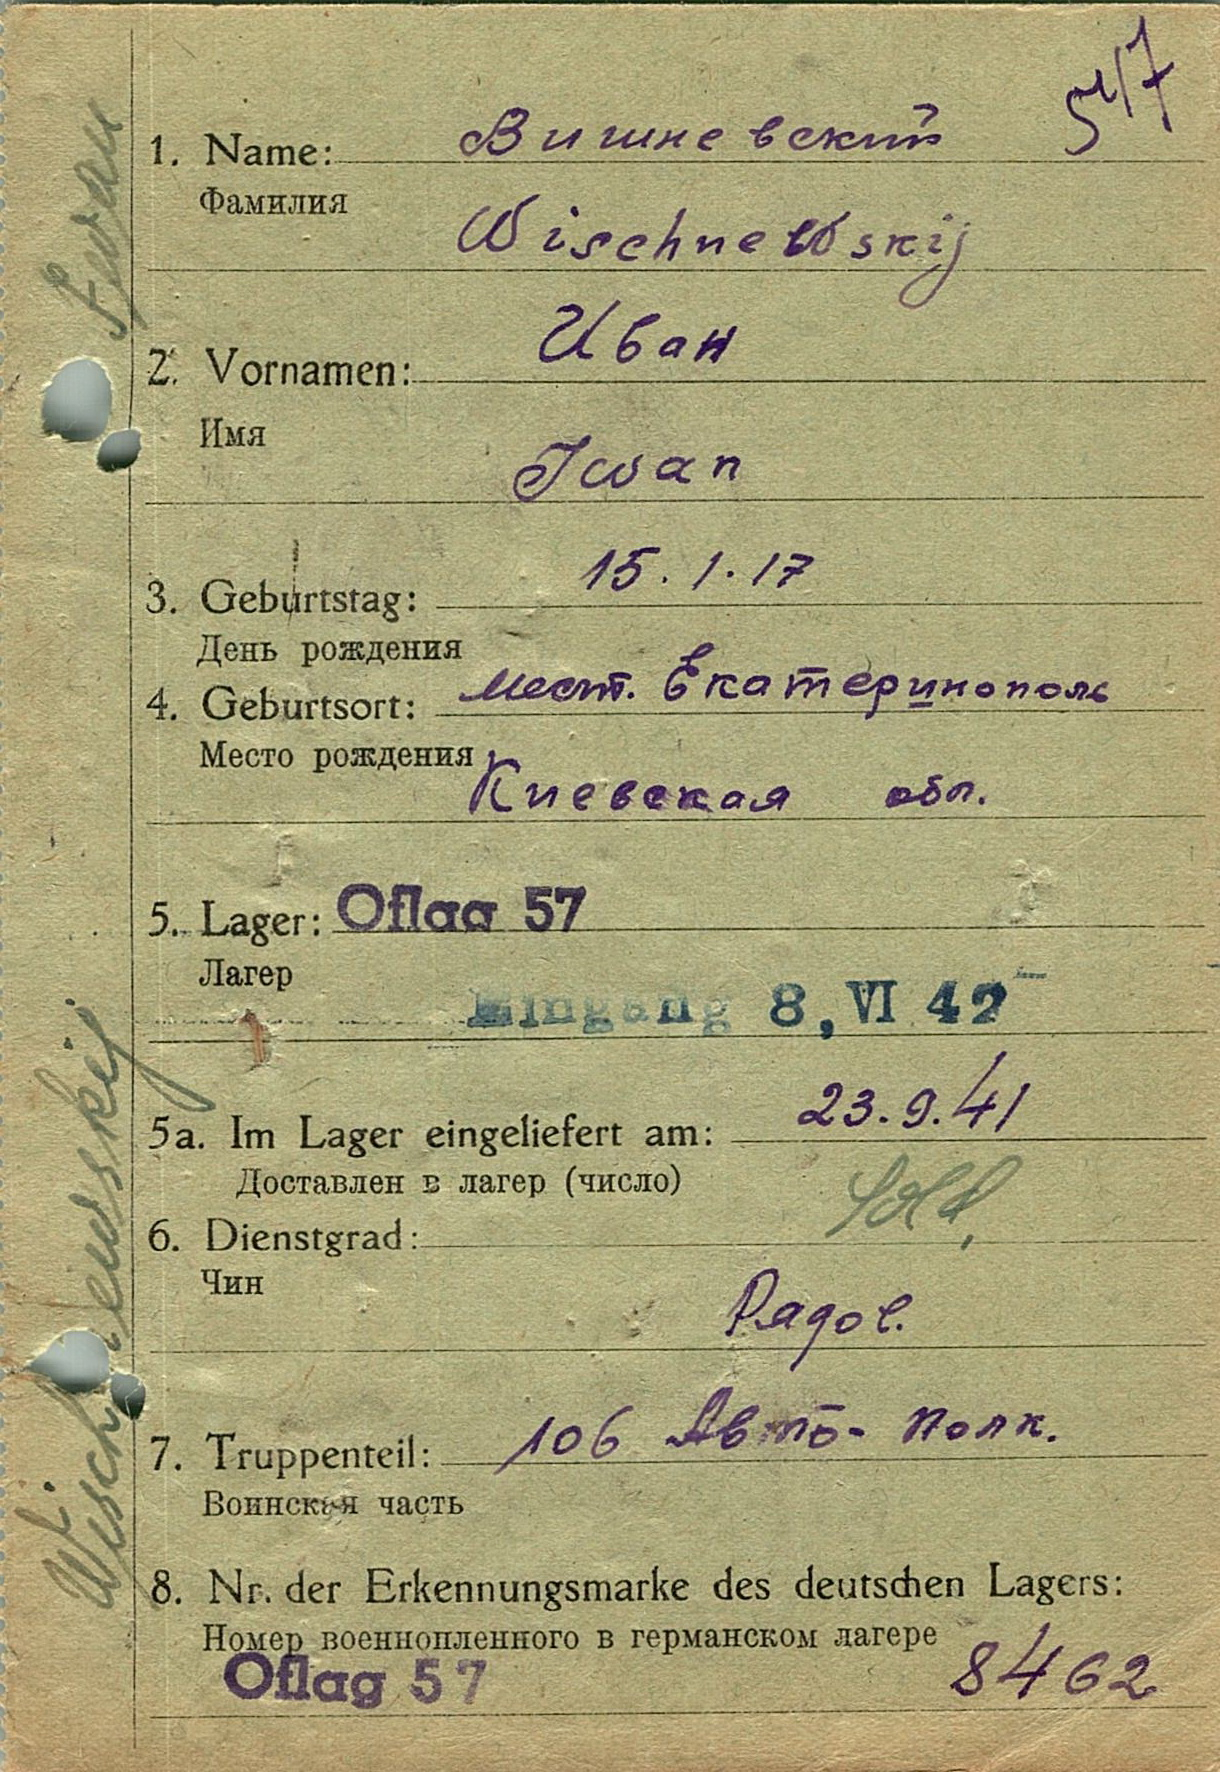 54/7
1. Name: Вишневский
Фамилия
Wischnewskij
2. Vornamen: Иван
Имя
Iwan
3. Geburtstag: 15.1.17
День рождения
4. Geburtsort: мест. Екатеринополь
Место рождения
Киевская обл.
5. Lager: Oflag 57
Лагер
Eingang 8, VI 42
5a. Im Lager eingeliefert am: 23.9.41
Доставлен в лагер (число)
6. Dienstgrad: Sold.
Чин
Рядов.
7. Truppenteil: 106 Авто-полк.
Воинская часть
8. Nr. der Erkennungsmarke des deutschen Lagers:
Номер военнопленного в германском лагере
Oflag 57 8462
Wischnewskij Iwan